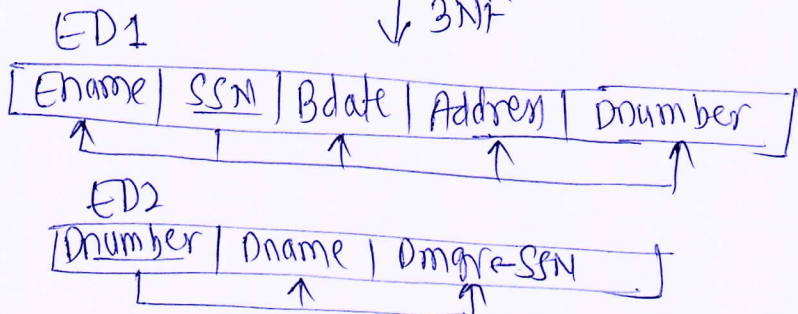 ↓ 3NF
ED1
Ename | SSN | Bdate | Address | Dnumber
ED2
Dnumber | Dname | Dmgr-SSN